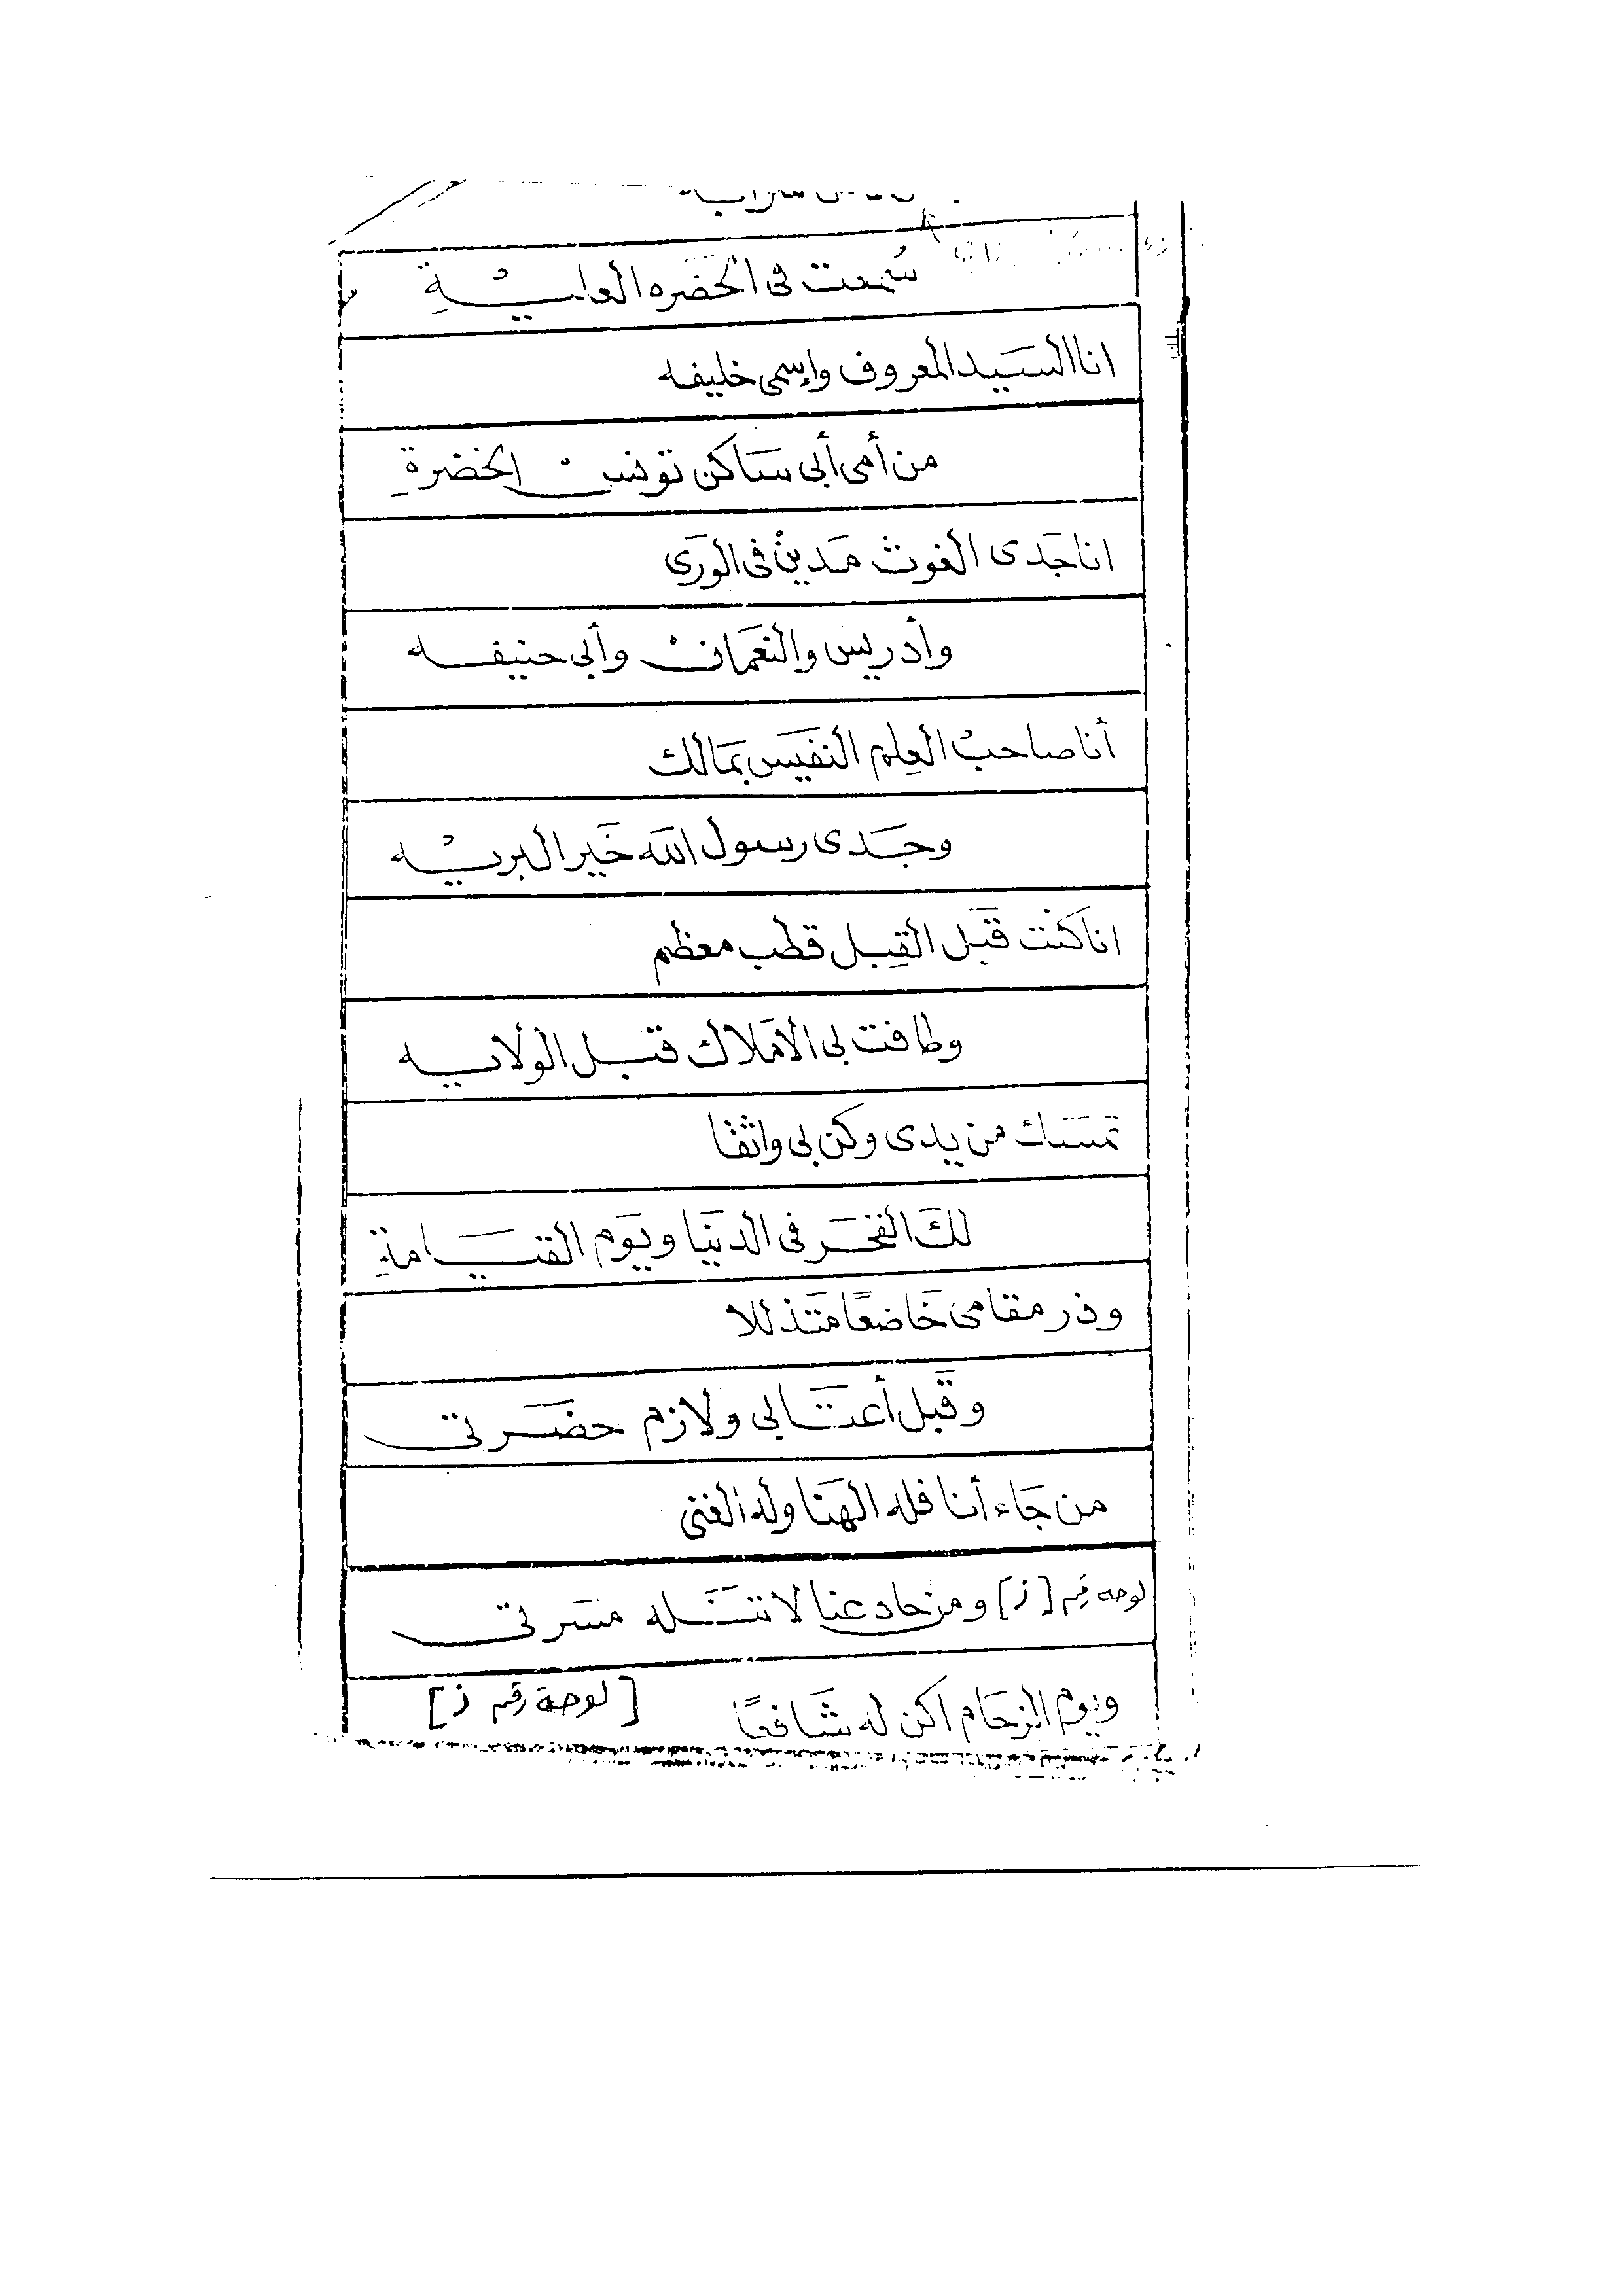 سُمعت فى الحضره العليْـــةِ
انا السَيد المعروف وإسمى خليفه
من أمى أبى سَاكن تونسْ الخضرةِ
انا جَدى الغوث مَدينْ فى الوَرَى
وأدريس والنعَمانْ وأبى حنيفـــه
أنا صاحبْ العِلم النفيَس بمَالك
وجَــدى رسول الله خَير البريْـــه
انا كنْت قَبل القِبل قطب معظم
وطافت بى الأمَلاك قبــل الولايـــه
تمسَـك من يدى وكن بى واثقا
لكَ الفخَــر فى الدنَيا ويَوم القيَـــامةِ
وذر مقامى خَاضعًا مَتذللا
وقَبل أعتَـابى ولازم حضَــرتى
من جَاء أنا فله الهَنا وله الغنى
لوحه رقم [ز] ومن حاد عنا لا تنَــله مسَرتى
ويوم الزحَام اكن له شَافعًا [لوحة رقم ز]